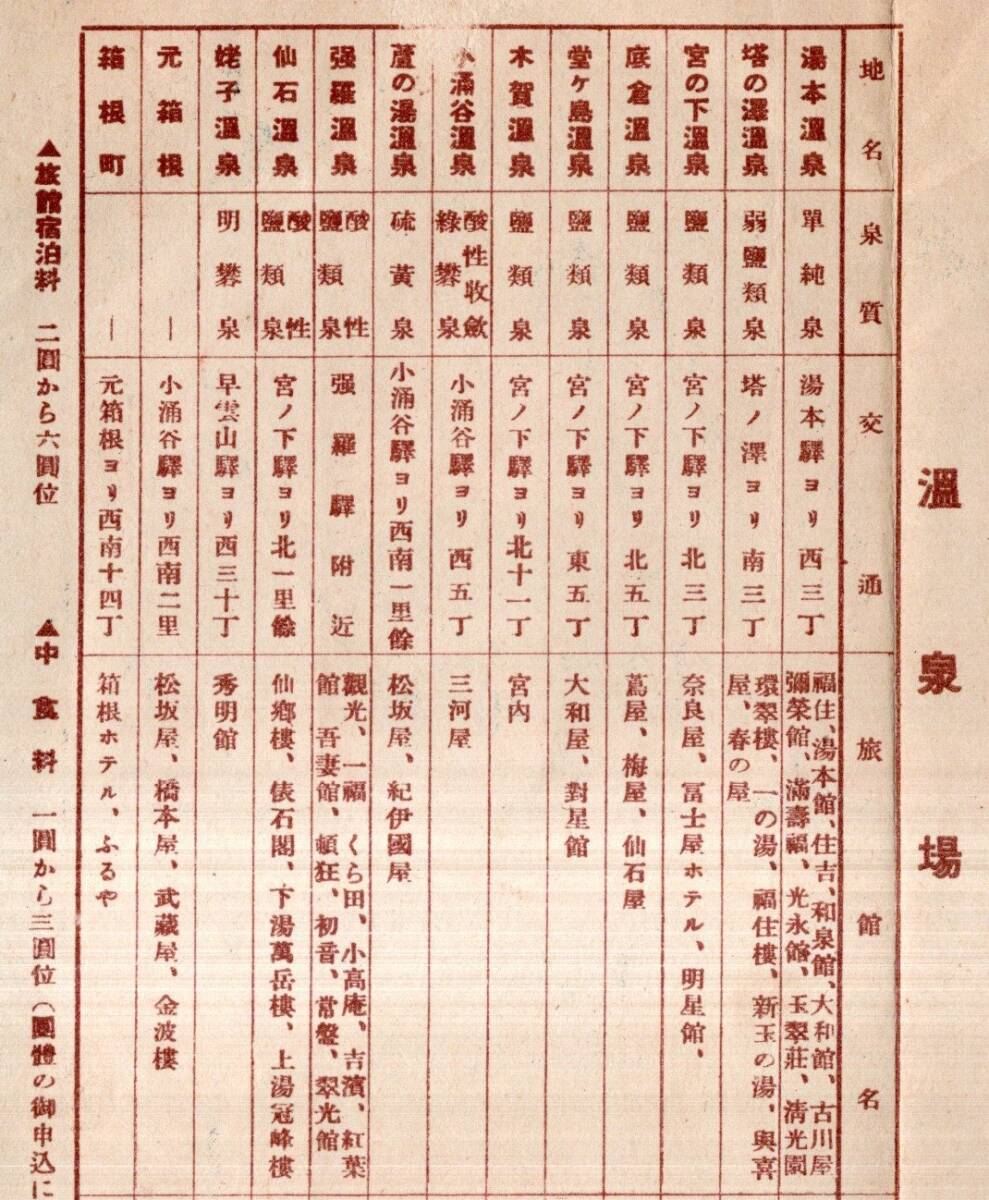 溫泉場
地名 泉質 交通 旅館名
湯本溫泉 單純泉 湯本驛ヨリ西三丁 福住、湯本館、住吉、和泉館、大和館、古川屋
彌榮館、滿壽福、光永館、玉翠莊、淸光園
塔の澤溫泉 弱鹽類泉 塔ノ澤ヨリ南三丁 環翠樓、一の湯、福住樓、新玉の湯、與喜
屋、春の屋
宮の下溫泉 鹽類泉 宮ノ下驛ヨリ北三丁 奈良屋、富士屋ホテル、明星館、
底倉溫泉 鹽類泉 宮ノ下驛ヨリ北五丁 蔦屋、梅屋、仙石屋
堂ヶ島溫泉 鹽類泉 宮ノ下驛ヨリ東五丁 大和屋、對星館
木賀溫泉 鹽類泉 宮ノ下驛ヨリ北十一丁 宮內
小涌谷溫泉 酸性收斂
綠礬泉 小涌谷驛ヨリ西五丁 三河屋
蘆の湯溫泉 硫黃泉 小涌谷驛ヨリ西南一里餘 松坂屋、紀伊國屋
强羅溫泉 酸性
鹽類泉 强羅驛附近 觀光、一福、くら田、小高庵、吉濱、紅葉
館、吾妻館、頓狂、初音、常盤、翠光館
仙石溫泉 酸性
鹽類泉 宮ノ下驛ヨリ北一里餘 仙鄕樓、俵石閣、下湯萬岳樓、上湯冠峰樓
姥子溫泉 明礬泉 早雲山驛ヨリ西三十丁 秀明館
元箱根 ― 小涌谷驛ヨリ西南二里 松坂屋、橋本屋、武藏屋、金波樓
箱根町 ― 元箱根ヨリ西南十四丁 箱根ホテル、ふるや
▲旅館宿泊料 二圓から六圓位 ▲中食料 一圓から三圓位(團體の御申込に